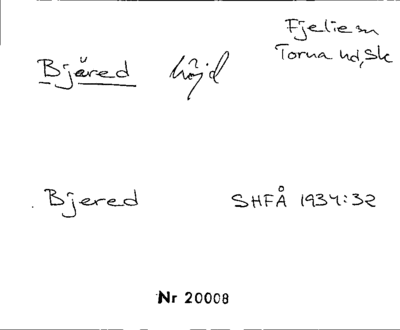 Fjelie sn
Torna hd, Sk
Bjäred höjd
Bjered SHFÅ 1934:32
Nr 20008